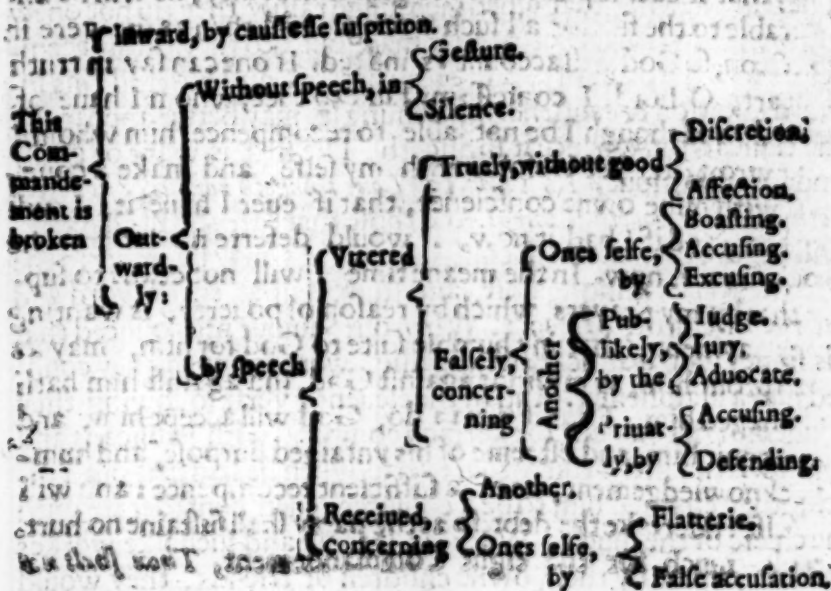 This
Com-
mande-
ment is
broken
Inward, by causlesse suspition.
Out-
ward-
ly:
Without speech, in
Gesture.
Silence.
by speech
Vttered
Truely, without good
Discretion.
Affection.
Falsely,
concer-
ning
Ones selfe,
by
Boasting.
Accusing.
Excusing.
Another
Pub-
likely,
by the
Judge.
Jury.
Advocate.
Priuat-
ly, by
Accusing.
Defending:
Received,
concerning
Another.
Ones selfe,
by
Flatterie.
False accusation.